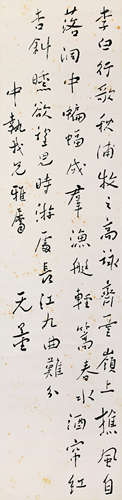 李白行歌秋浦牧之高詠齊雲嶺上樵風自
落洞中蝙蝠成羣漁艇輕篙春水酒帘紅
杏斜曛欲望兒時游屐長江九曲難分
中執我兄雅屬
无量